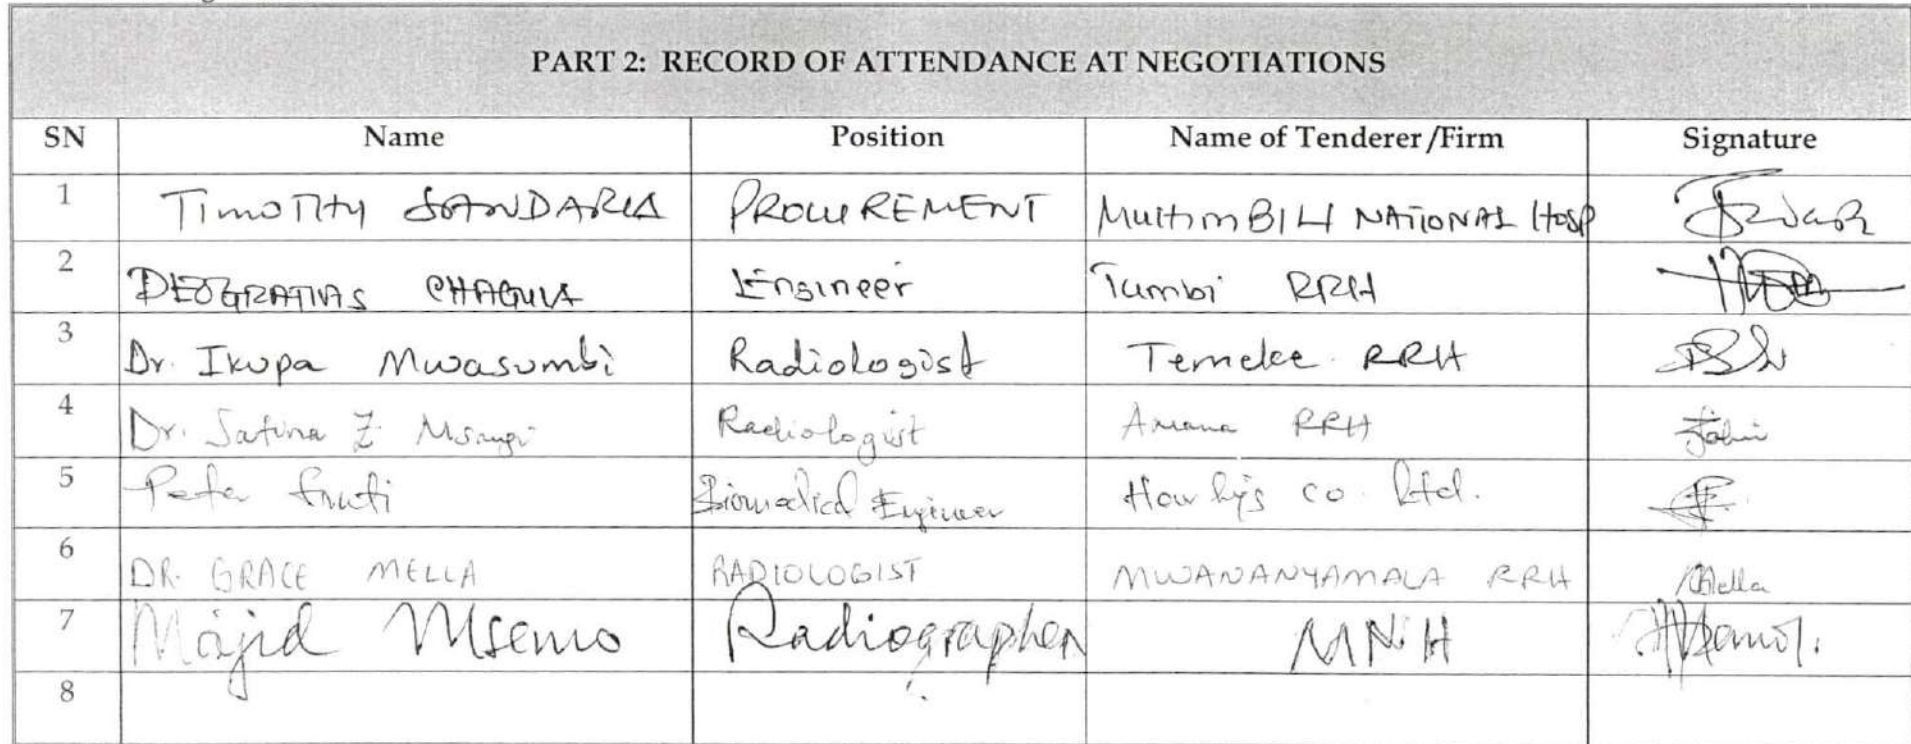 PART 2: RECORD OF ATTENDANCE AT NEGOTIATIONS
SN Name Position Name of Tenderer/Firm Signature
1 TimoTHy SANDARIA PROCUREMENT MuHimBILI NATIONAL Hosp
2 DEOGRATIAS CHAGULA Engineer Tumbi RRH
3 Dr. Ikupa Mwasumbi Radiologist Temeke RRH
4 Dr. Safina Z Msangi Radiologist Amana RRH
5 Peter Biomedical Engineer co. Ltd.
6 DR. GRACE MELLA RADIOLOGIST MWANANYAMALA RRH Mella
7 Majid Msemo Radiographer MNH
8